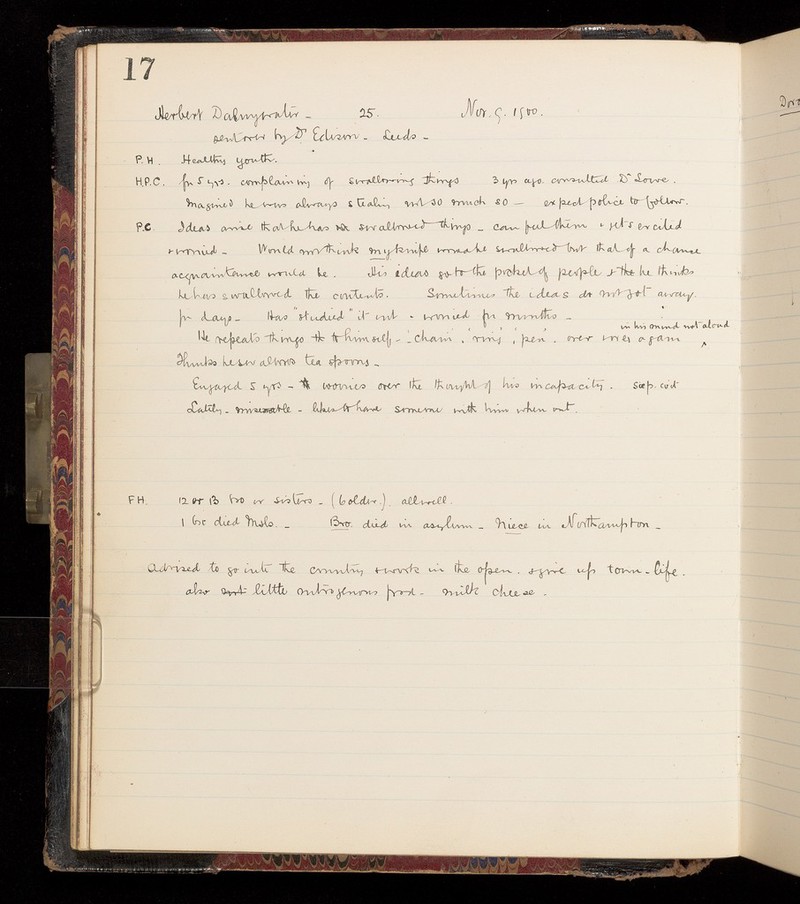 17
Herbert 25. Nov. 9. 1900.
sent over by Dr Edison - Leeds -
P.H. Healthy youth.
H.P.C. for 5 yrs. complaining of swallowing things 3 yrs ago. consulted Dr Lowe.
Imagined he was always stealing not so much so - expect police to follow.
P.C. Ideas arise that he has swallowed things - can feel them + gets excited
+ worried - Would not think my knife would be swallowed but that of a chance
acquaintance would be. His ideas go to the pocket of people + he thinks
he has swallowed the contents. Sometimes the ideas do not go away.
for days - Has "studied" it out - worried for months -
in his mind not aloud
He repeats things to himself - 'chain', 'ring', 'pen'. over + over again
Thinks he swallows tea spoons -
Engaged 5 yrs - worries over the thought of his incapacity.
Lately - miserable - likes to have someone with him when out.
F.H. 12 or 13 bro or sisters - (6 older.) all well.
1 died - Bro. died in asylum - Niece in Northampton -
Advised to go into the country + work in the open. + give up town-life.
also little nitrogenous food - milk cheese.
Doro